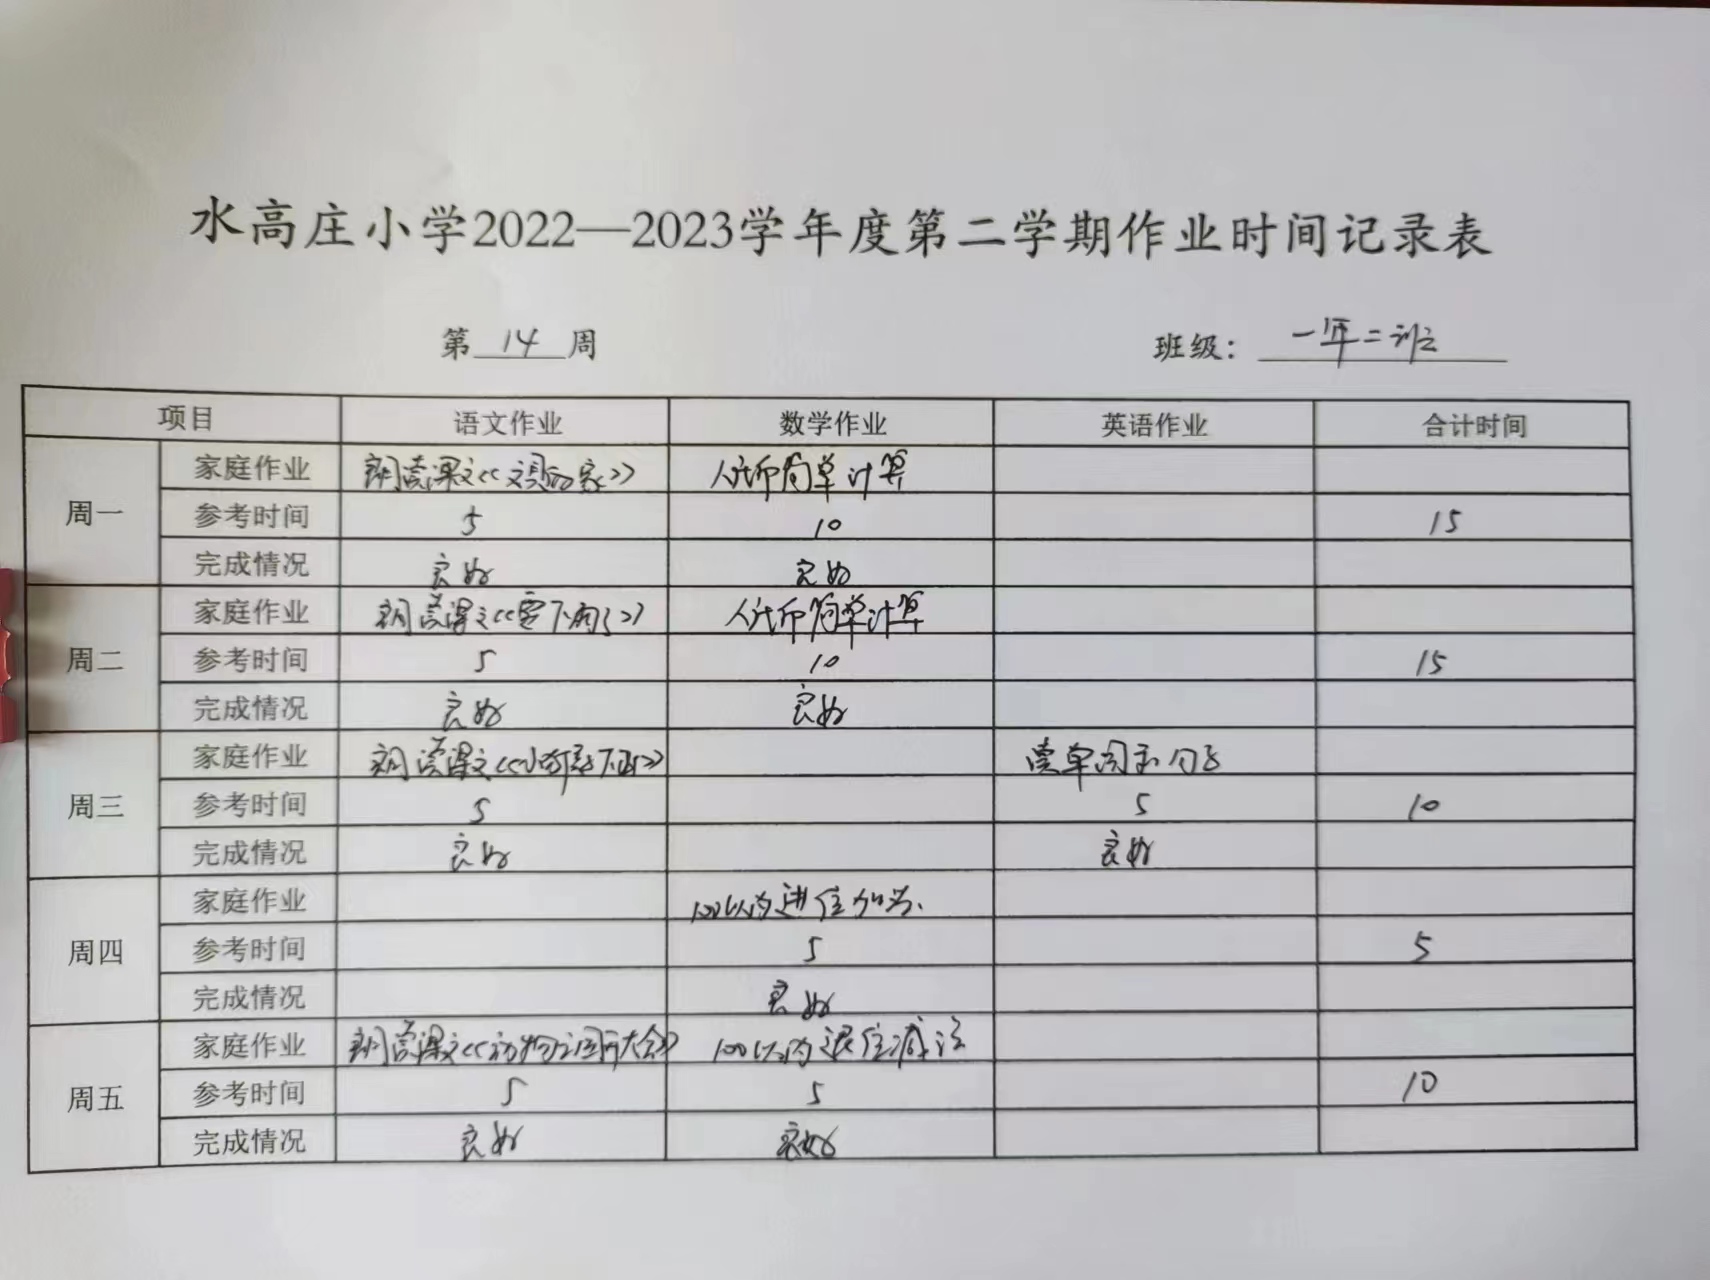 水高庄小学2022—2023学年度第二学期作业时间记录表
第 14 周 班级： 一年二班
项目 语文作业 数学作业 英语作业 合计时间
周一 家庭作业 朗读课文<<文具的家>> 人民币简单计算
参考时间 5 10 15
完成情况 良好 良好
周二 家庭作业 朗读课文<<要下雨了>> 人民币简单计算
参考时间 5 10 15
完成情况 良好 良好
周三 家庭作业 朗读课文<<小猴子下山>> 读单词和句子
参考时间 5 5 10
完成情况 良好 良好
周四 家庭作业 100以内进位加法
参考时间 5 5
完成情况 良好
周五 家庭作业 朗读课文<<动物运动大会>> 100以内退位减法
参考时间 5 5 10
完成情况 良好 良好